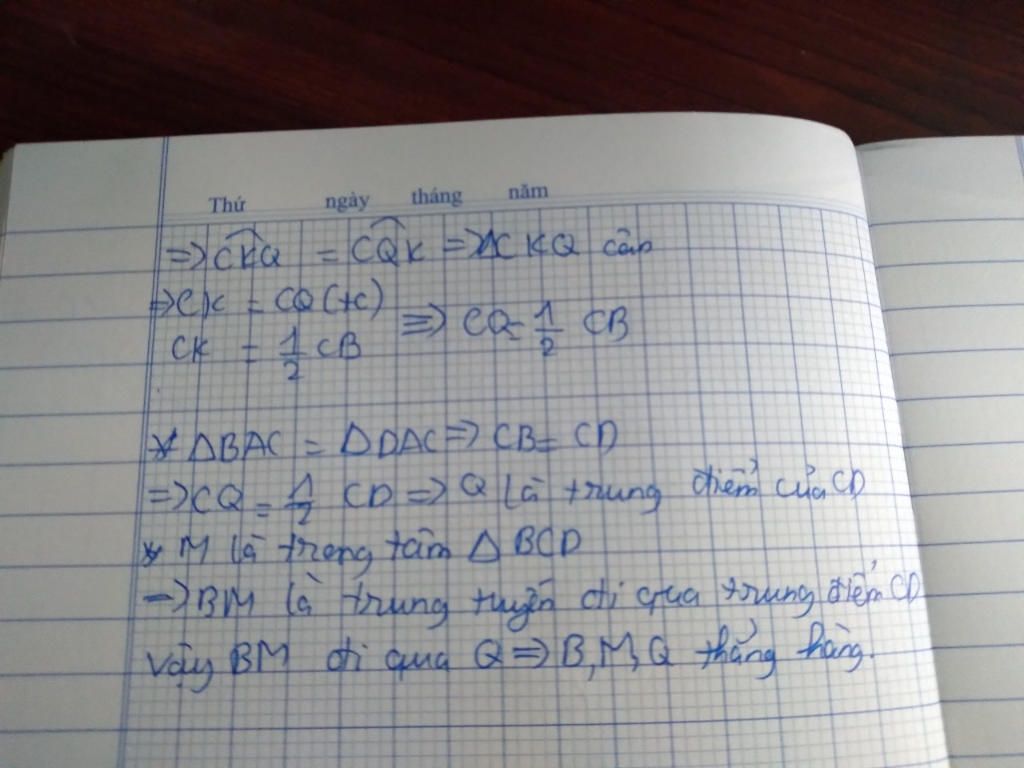 Thứ ngày tháng năm
=> CKQ = CQK => ΔCKQ cân
=> CK = CQ (tc)
CK = 1/2 CB => CQ = 1/2 CB
* ΔBAC = ΔDAC => CB = CD
=> CQ = 1/2 CD => Q là trung điểm của CD
* M là trong tâm Δ BCD
-> BM là trung tuyến đi qua trung điểm CD
vậy BM đi qua Q => B, M, Q thẳng hàng.